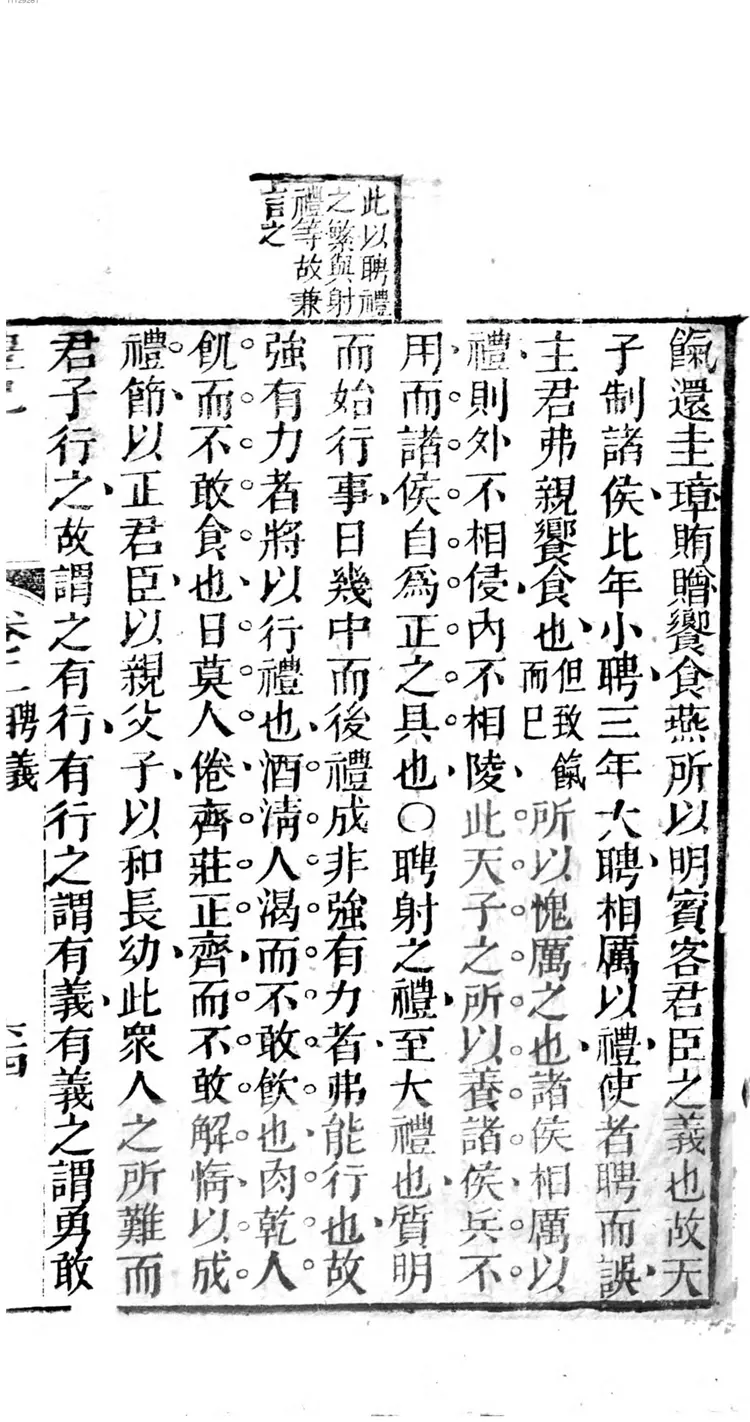 11129261
此以聘禮
之繁與射
禮等故兼
言之
餼還圭璋賄贈饗食燕所以明賓客君臣之義也故天
子制諸侯比年小聘三年大聘相厲以禮使者聘而誤
主君弗親饗食也但致餼而已所以愧厲之也諸侯相厲以
禮則外不相侵內不相陵此天子之所以養諸侯兵不
用而諸侯自為正之具也〇聘射之禮至大禮也質明
而始行事日幾中而後禮成非強有力者弗能行也故
強有力者將以行禮也酒清人渴而不敢飲也肉乾人
飢而不敢食也日莫人倦齊莊正齊而不敢解惰以成
禮節以正君臣以親父子以和長幼此眾人之所難而
君子行之故謂之有行有行之謂有義有義之謂勇敢
卷二 聘義